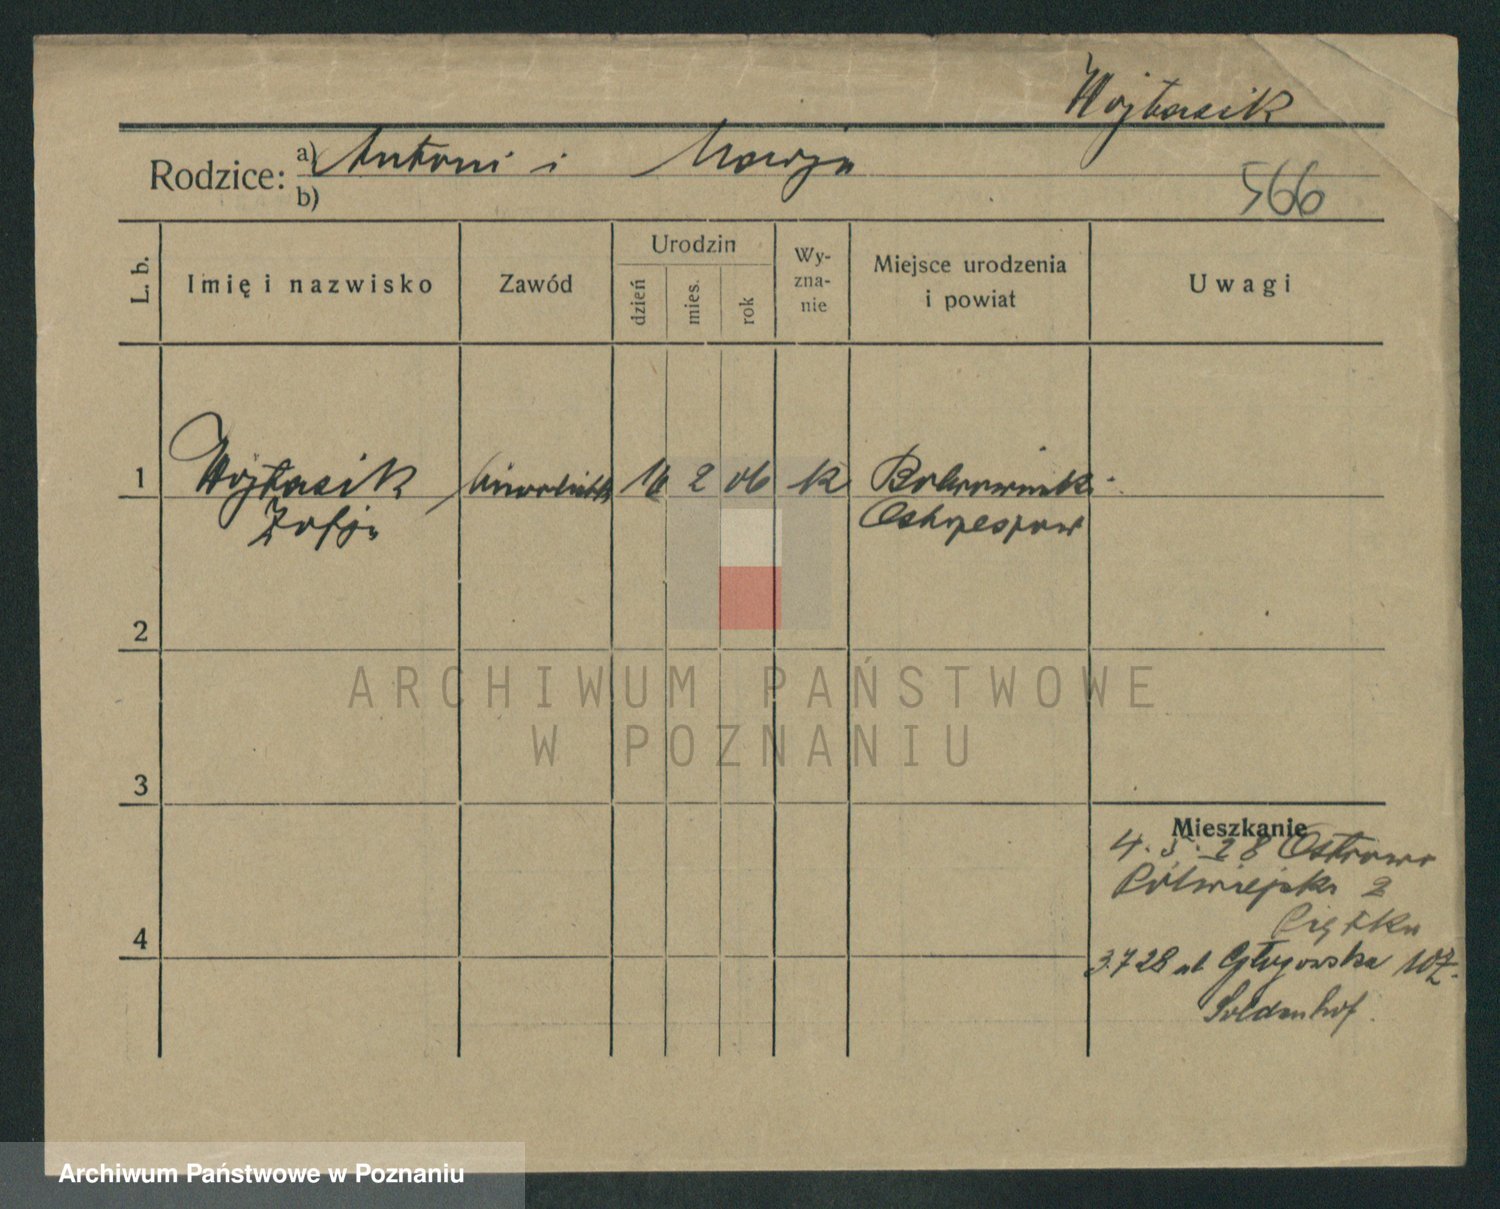 Wojtasik
Rodzice: a) Antoni i Marja
b)
566
L. b.
Imię i nazwisko
Zawód
Urodzin
dzień
mies.
rok
Wy-
zna-
nie
Miejsce urodzenia
i powiat
Uwagi
1
Wojtasik
Zofja
16
2
06
k
Ostrzeszów
2
3
4
Mieszkanie
4.5.28 Ostrowo
Półwiejska 2
3.7.28 ul. Głogowska
ARCHIWUM PAŃSTWOWE
W POZNANIU
Archiwum Państwowe w Poznaniu